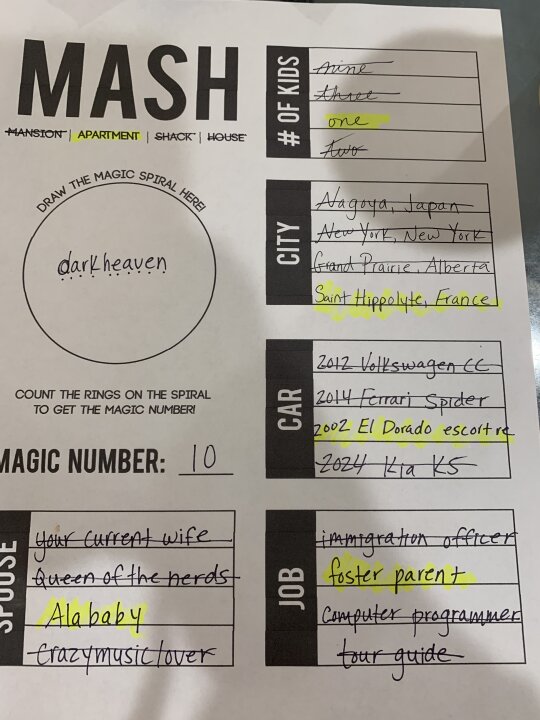 MASH
MANSION | APARTMENT | SHACK | HOUSE
DRAW THE MAGIC SPIRAL HERE!
darkheaven
COUNT THE RINGS ON THE SPIRAL
TO GET THE MAGIC NUMBER!
MAGIC NUMBER: 10
SPOUSE
your current wife
Queen of the nerds
Alababy
Crazymusiclover
# OF KIDS
nine
three
one
two
CITY
Nagoya, Japan
New York, New York
Grand Prairie, Alberta
Saint Hippolyte, France
CAR
2012 Volkswagen CC
2014 Ferrari Spider
2002 El Dorado escort re
2024 Kia K5
JOB
immigration officer
foster parent
computer programmer
tour guide